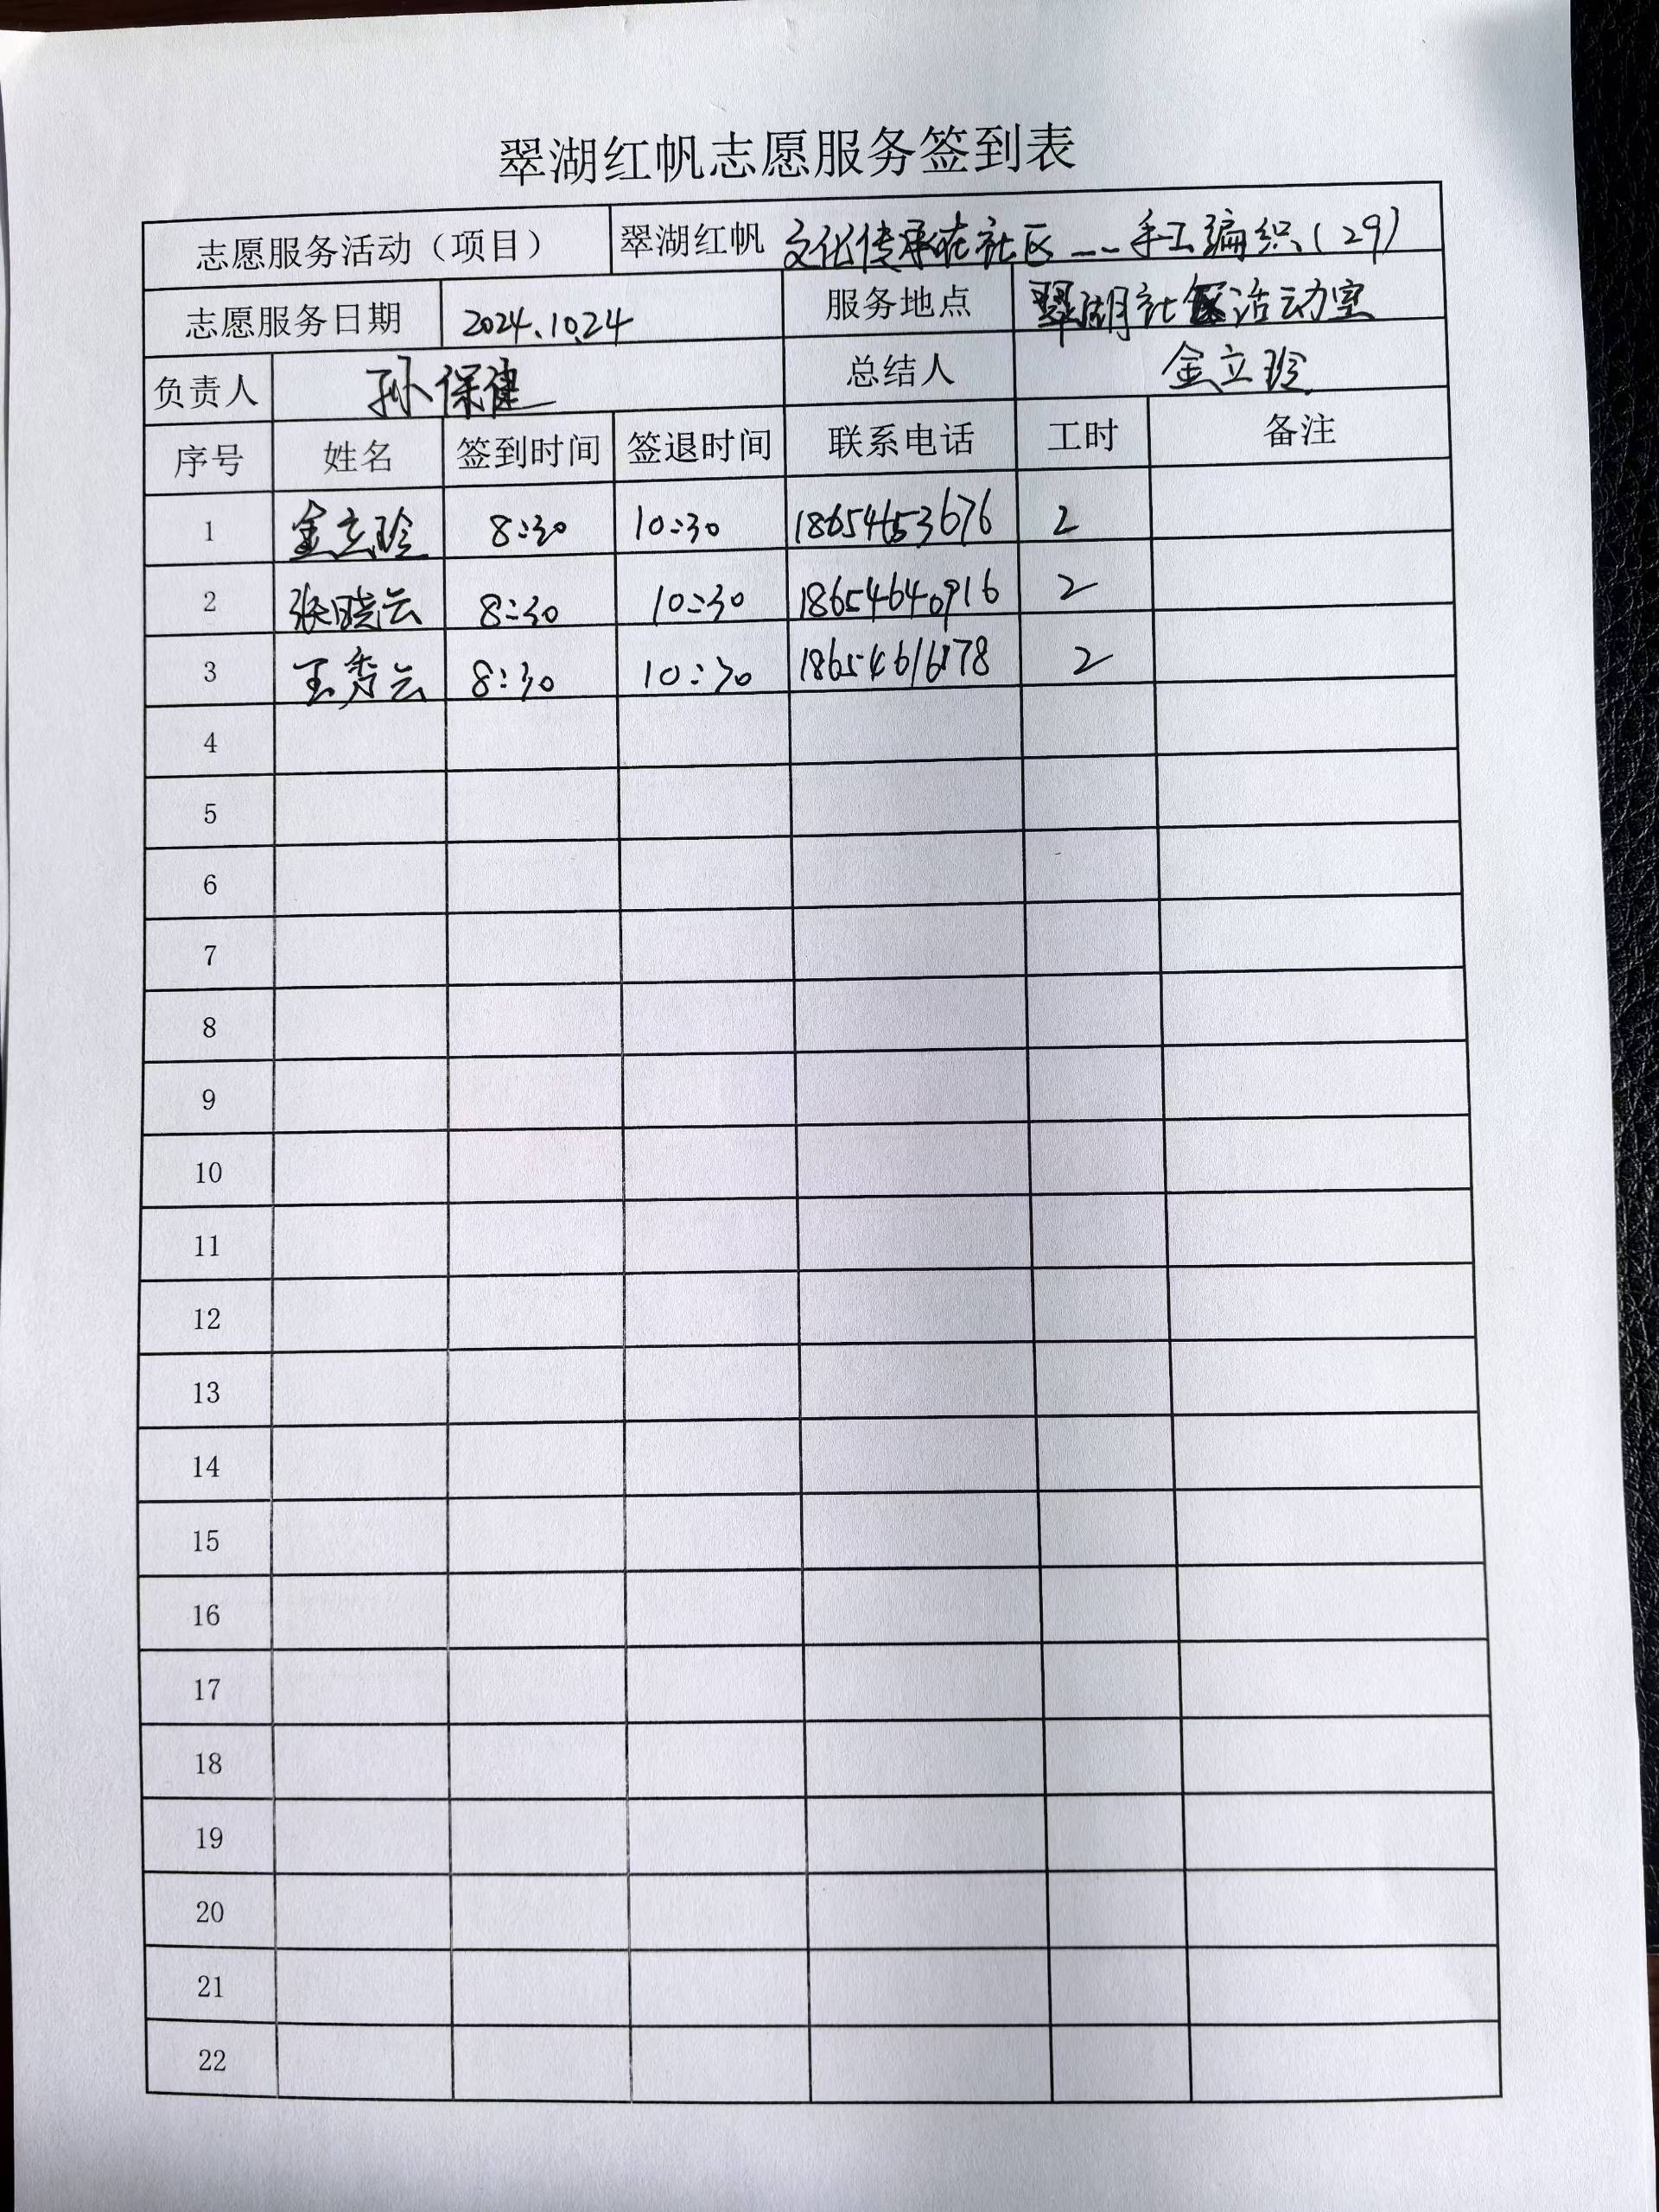 翠湖红帆志愿服务签到表
志愿服务活动（项目） 翠湖红帆 文化传承在社区---手工编织(29)
志愿服务日期 2024.10.24 服务地点 翠湖社区活动室
负责人 孙保健 总结人 金立玲
序号 姓名 签到时间 签退时间 联系电话 工时 备注
1 金立玲 8:30 10:30 18654653676 2
2 张晓云 8:30 10:30 18654640916 2
3 王秀云 8:30 10:30 2
4
5
6
7
8
9
10
11
12
13
14
15
16
17
18
19
20
21
22